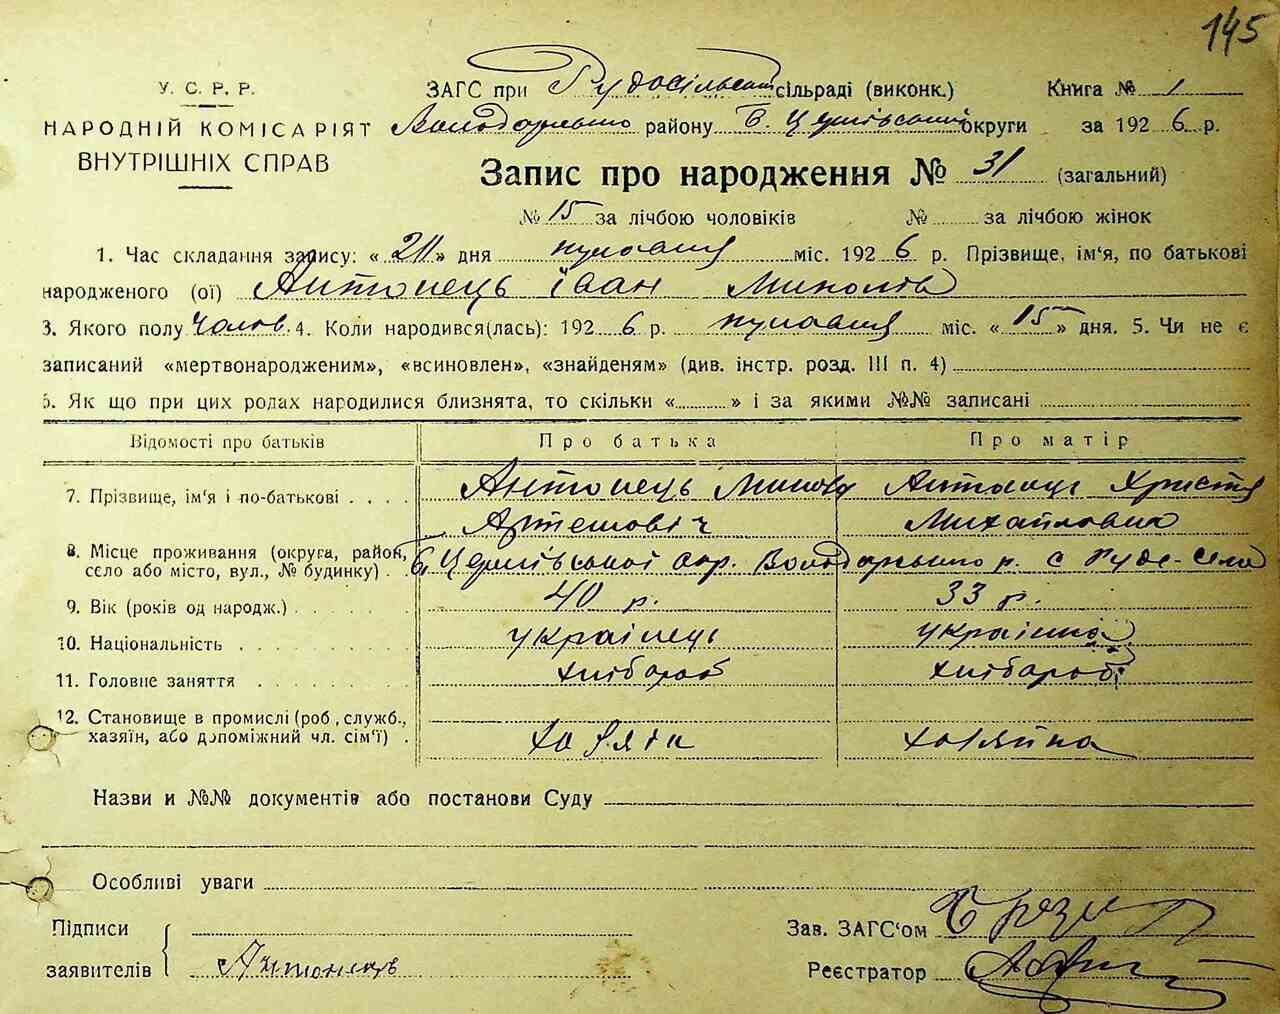 145
У. С. Р. Р.
НАРОДНІЙ КОМІСАРІЯТ
ВНУТРІШНІХ СПРАВ
ЗАГС при Рудосільськ сільраді (виконк.) Книга № 1
Володарського району Б. Церківської округи за 1926 р.
Запис про народження № 31 (загальний)
№ 15 за лічбою чоловіків № за лічбою жінок
1. Час складання запису: « » дня міс. 1926 р. Прізвище, ім'я, по батькові
народженого (ої) Антонець Іван Миколів
3. Якого полу Чолов. 4. Коли народився(лась): 1926 р. міс. «15» дня. 5. Чи не є
записаний «мертвонародженим», «всиновлен», «знайденям» (див. інстр. розд. III п. 4)
6. Як що при цих родах народилися близнята, то скільки « » і за якими №№ записані
Відомості про батьків Про батька Про матір
7. Прізвище, ім'я і по-батькові . . . . Антонець Микола Антонець Христя
Артемович Михайловна
8. Місце проживання (округа, район,
село або місто, вул., № будинку) . . Б Церківської окр. Володарського р. с Руде-Село
9. Вік (років од народж.) . . . . . . 40 р. 33 р.
10. Національність . . . . . . . . українець українка
11. Головне заняття . . . . . . . хлібороб хлібороб
12. Становище в промислі (роб., служб.,
хазяїн, або допоміжний чл. сім'ї) . хазяїн хазяйка
Назви и №№ документів або постанови Суду
Особливі уваги
Підписи
заявителів Антонець
Зав. ЗАГС'ом
Реєстратор